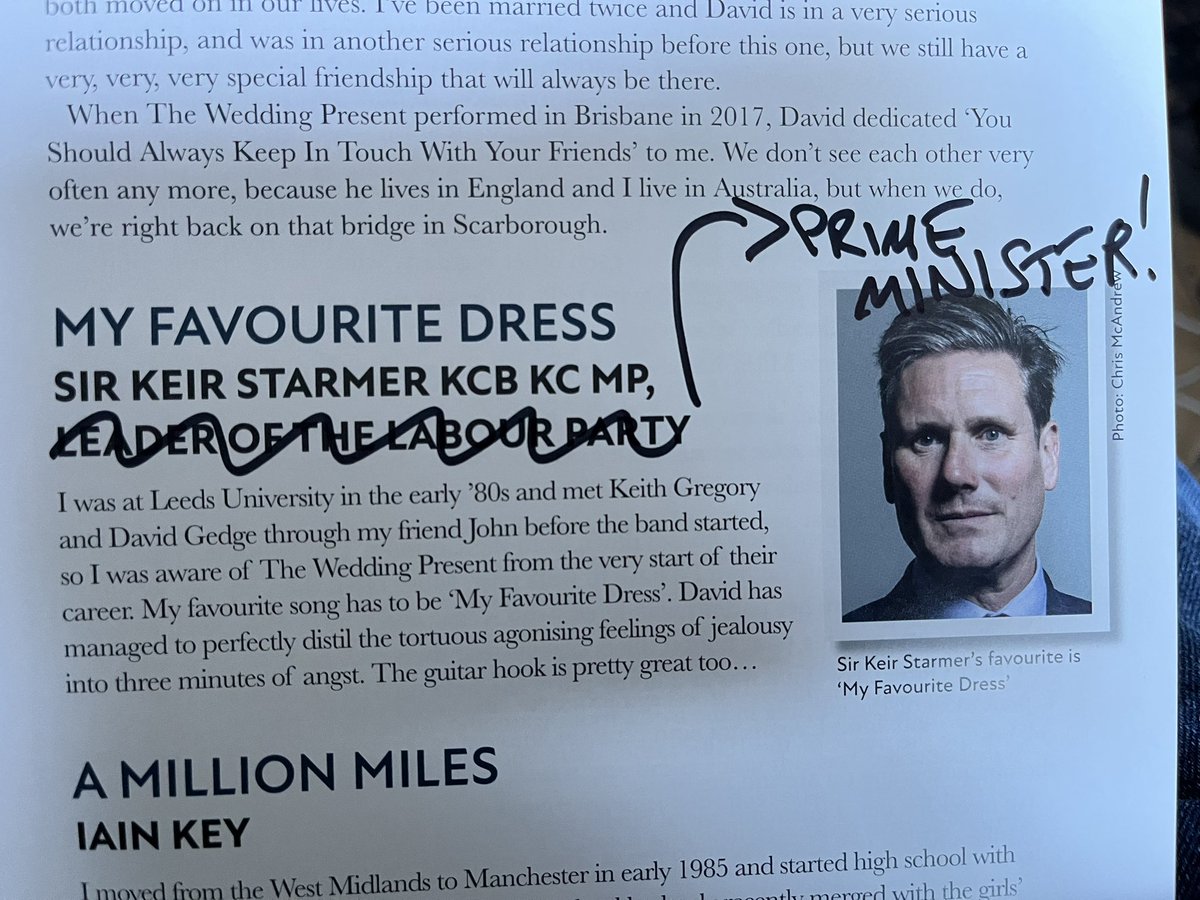 both moved on in our lives. I've been married twice and David is in a very serious
relationship, and was in another serious relationship before this one, but we still have a
very, very, very special friendship that will always be there.
When The Wedding Present performed in Brisbane in 2017, David dedicated 'You
Should Always Keep In Touch With Your Friends' to me. We don't see each other very
often any more, because he lives in England and I live in Australia, but when we do,
we're right back on that bridge in Scarborough.
PRIME
MINISTER!
MY FAVOURITE DRESS
SIR KEIR STARMER KCB KC MP,
LEADER OF THE LABOUR PARTY
I was at Leeds University in the early '80s and met Keith Gregory
and David Gedge through my friend John before the band started,
so I was aware of The Wedding Present from the very start of their
career. My favourite song has to be 'My Favourite Dress'. David has
managed to perfectly distil the tortuous agonising feelings of jealousy
into three minutes of angst. The guitar hook is pretty great too…
Photo: Chris McAndrew
Sir Keir Starmer's favourite is
'My Favourite Dress'
A MILLION MILES
IAIN KEY
I moved from the West Midlands to Manchester in early 1985 and started high school with
recently merged with the girls'